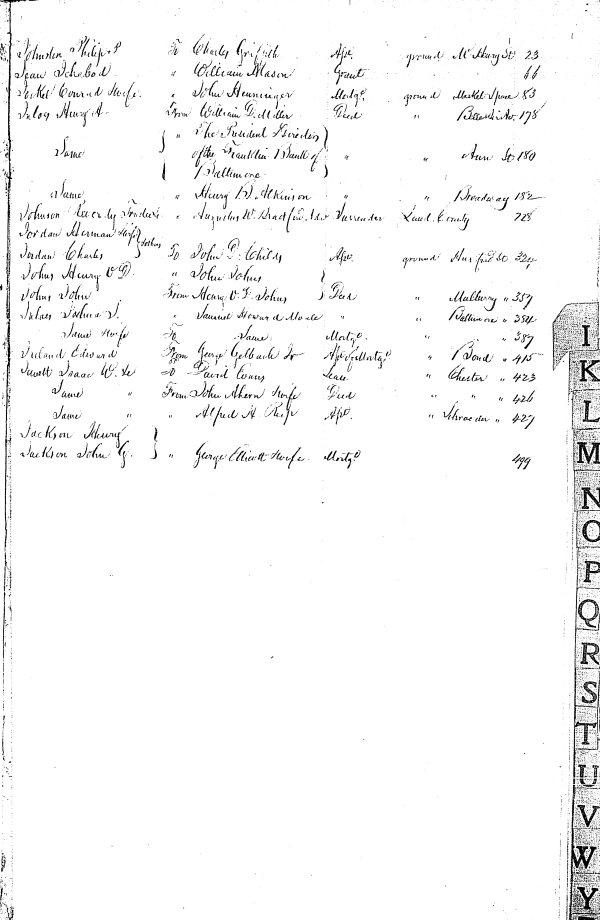 Johnston Philip P To Charles Griffith Apt. ground McHenry St 23
Jean Ichabod " William Mason Grant 66
Jeckel Conrad & wife " John Henninger Mortge ground Market Space 83
Henry A. From William G. Miller Deed " 178
" The President & Directors
Same of the Franklin Bank of " " Ann St 180
Baltimore
Same " Henry B. Atkinson " " Broadway 182
Johnson " Augustus W. Bradford Surrender Land County 228
Jordan Herman & wife
Jordan Charles To John P. Childs Apt. ground St 324
Johns Henry V D. " John Johns
Johns John From Henry V. D. Johns Deed " Mulberry " 357
Joshua I. " Samuel Howard " " Baltimore " 384
Same & wife To Same Mortge " " 387
Ireland Edward From George Gelbach Jr Apt of Mortge " Bond " 415
Jewett Isaac W. &c To David Evans Lease " Chester " 423
Same " From John Ahern & wife Deed " " " 426
Same " " Alfred H Reip Apt. " Schroeder " 427
Jackson Henry
Jackson John G. " George Ellicott & wife Mortge 499
I
K
L
M
N
O
P
Q
R
S
T
U
V
W
Y